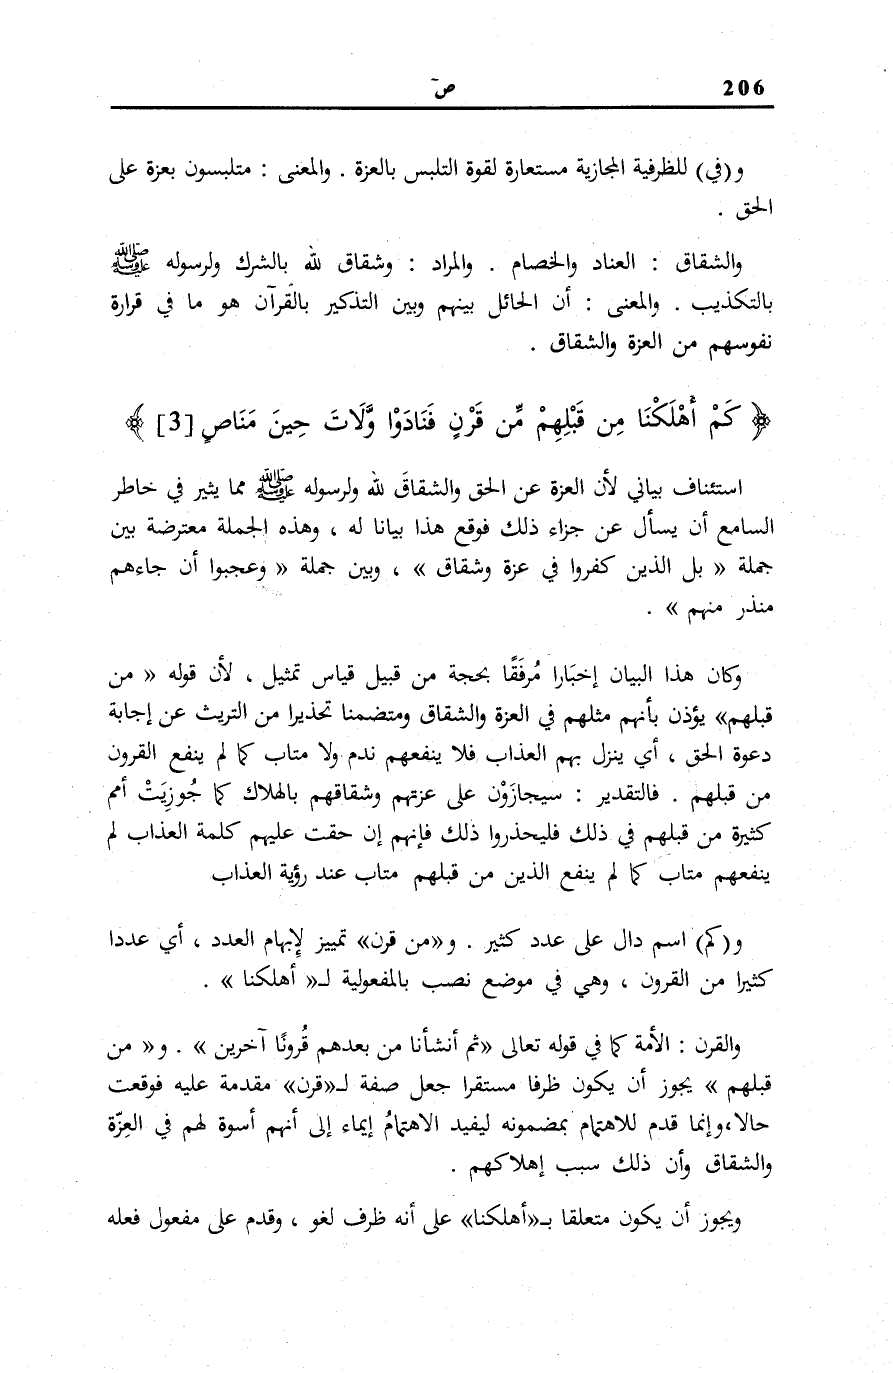 206 صۤ
و(في) للظرفية المجازية مستعارة لقوة التلبس بالعزة . والمعنى : متلبسون بعزة على
الحق .
والشقاق : العناد والخصام . والمراد : وشقاق لله بالشرك ولرسوله ﷺ
بالتكذيب . والمعنى : أن الحائل بينهم وبين التذكير بالقرآن هو ما في قرارة
نفوسهم من العزة والشقاق .
﴿ كَمْ أَهْلَكْنَا مِن قَبْلِهِمْ مِّن قَرْنٍ فَنَادَوْا وَّلَاتَ حِينَ مَنَاصٍ [3] ﴾
استئناف بياني لأن العزة عن الحق والشقاقَ لله ولرسوله ﷺ مما يثير في خاطر
السامع أن يسأل عن جزاء ذلك فوقع هذا بيانا له ، وهذه الجملة معترضة بين
جملة « بل الذين كفروا في عزة وشقاق » ، وبين جملة « وعجبوا أن جاءهم
منذر منهم » .
وكان هذا البيان إخبَارا مُرفَقًا بحجة من قبيل قياس تمثيل ، لأن قوله « من
قبلهم» يؤذن بأنهم مثلهم في العزة والشقاق ومتضمنا تحذيرا من التريث عن إجابة
دعوة الحق ، أي ينزل بهم العذاب فلا ينفعهم ندم ولا متاب كما لم ينفع القرون
من قبلهم . فالتقدير : سيجازَوْن على عزتهم وشقاقهم بالهلاك كما جُوزِيَتْ أمم
كثيرة من قبلهم في ذلك فليحذروا ذلك فإنهم إن حقت عليهم كلمة العذاب لم
ينفعهم متاب كما لم ينفع الذين من قبلهم متاب عند رؤية العذاب
و(كم) اسم دال على عدد كثير . و«من قرن» تمييز لإبهام العدد ، أي عددا
كثيرا من القرون ، وهي في موضع نصب بالمفعولية لـ« أهلكنا » .
والقرن : الأمة كما في قوله تعالى «ثم أنشأنا من بعدهم قُرونًا آخرين » . و« من
قبلهم » يجوز أن يكون ظرفا مستقرا جعل صفة لـ«قرن» مقدمة عليه فوقعت
حالا،وإنما قدم للاهتمام بمضمونه ليفيد الاهتمامُ إيماء إلى أنهم أسوة لهم في العِزّة
والشقاق وأن ذلك سبب إهلاكهم .
ويجوز أن يكون متعلقا بـ«أهلكنا» على أنه ظرف لغو ، وقدم على مفعول فعله